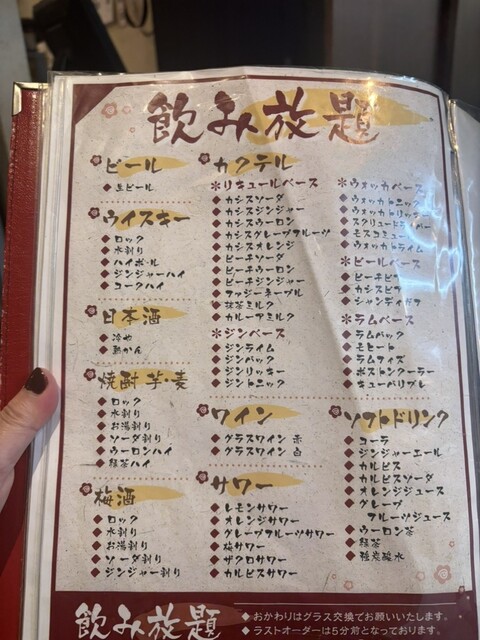 飲み放題
ビール
生ビール
ウイスキー
ロック
水割り
ハイボール
ジンジャーハイ
コークハイ
日本酒
冷や
熱かん
焼酎 芋・麦
ロック
水割り
お湯割り
ソーダ割り
ウーロンハイ
緑茶ハイ
梅酒
ロック
水割り
お湯割り
ソーダ割り
ジンジャー割り
カクテル
＊リキュールベース
カシスソーダ
カシスジンジャー
カシスウーロン
カシスグレープフルーツ
カシスオレンジ
ピーチソーダ
ピーチウーロン
ピーチジンジャー
ファジーネーブル
抹茶ミルク
カルーアミルク
＊ジンベース
ジンライム
ジンバック
ジンリッキー
ジントニック
＊ウォッカベース
ウォッカトニック
ウォッカリッキー
スクリュードライバー
モスコミュール
ウォッカライム
＊ビールベース
ピーチビア
カシスビア
シャンディガフ
＊ラムベース
ラムバック
モヒート
ラムフィズ
ボストンクーラー
キューバリブレ
ワイン
グラスワイン 赤
グラスワイン 白
サワー
レモンサワー
オレンジサワー
グレープフルーツサワー
梅サワー
ザクロサワー
カルピスサワー
ソフトドリンク
コーラ
ジンジャーエール
カルピス
カルピスソーダ
オレンジジュース
グレープ
フルーツジュース
ウーロン茶
緑茶
強炭酸水
飲み放題
◆おかわりはグラス交換でお願いいたします。
◆ラストオーダーは5分前となっております。